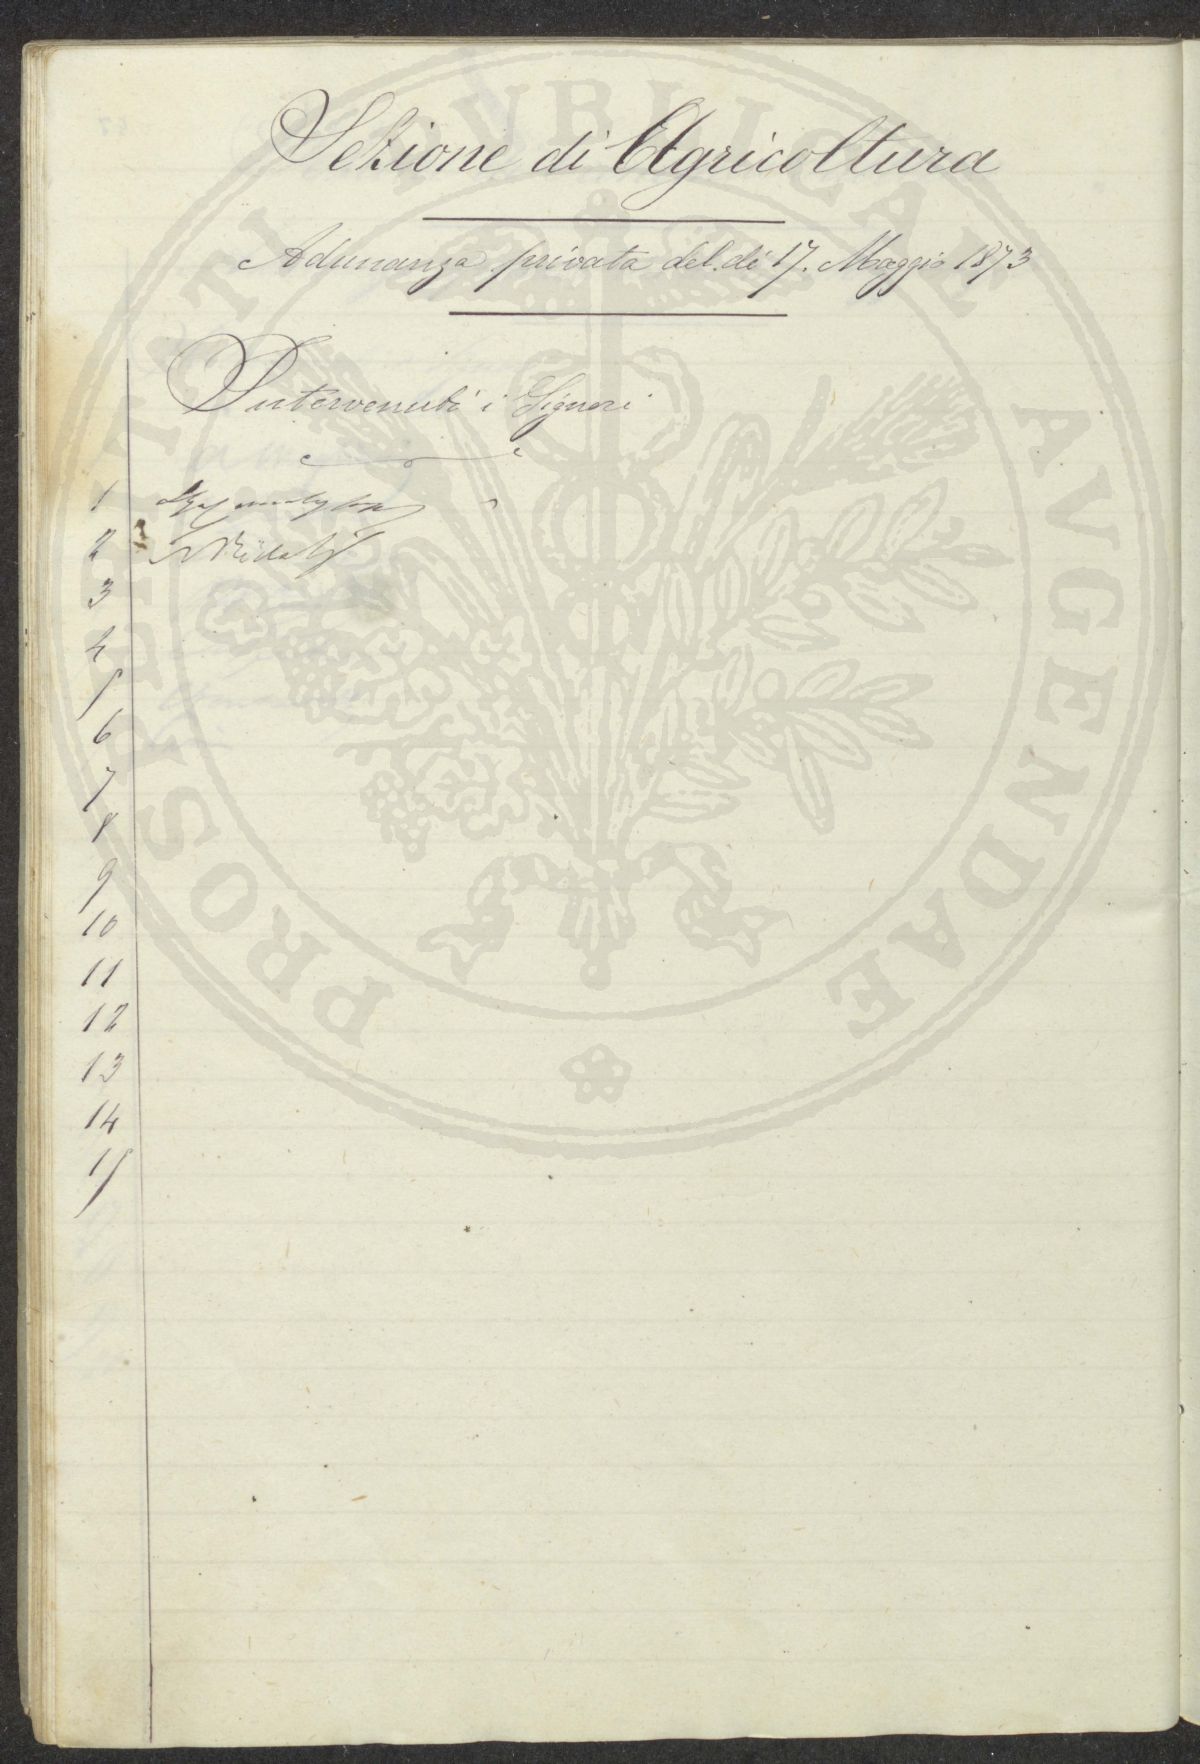 Sezione di Agricoltura
Adunanza privata del dì 17. Maggio 1873
Intervenuti i Signori
1
2 Ridolfi
3
4
5
6
7
8
9
10
11
12
13
14
15
PROSPERITATI PVBLICAE AVGENDAE